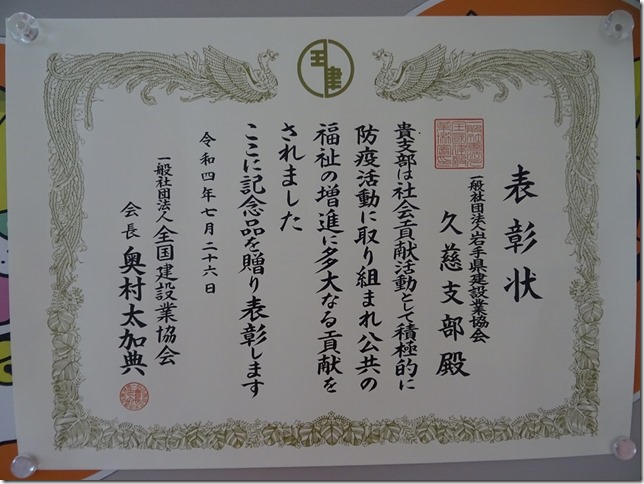 全建
表彰状
一般社団法人岩手県建設業協会
久慈支部殿
貴支部は社会貢献活動として積極的に
防疫活動に取り組まれ公共の
福祉の増進に多大なる貢献を
されました
ここに記念品を贈り表彰します
令和四年七月二十六日
一般社団法人全国建設業協会
会長奥村太加典